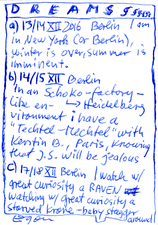 DREAMS
a) 13/14 XII 2016 Berlin I am
in New York (or Berlin),
winter is over, summer is
imminent.
b) 14/15 XII Berlin
In an Schoko-factory-
like en- → Heidelberg
vironment i have a
"Techtel-Mechtel" with
Kerstin B., Paris, knowing
that J.S. will be jealous
c) 17/18 XII Berlin I watch w/
great curiosity a RAVEN
watching w/ great curiosity a
starved Krähe-baby stagger
around